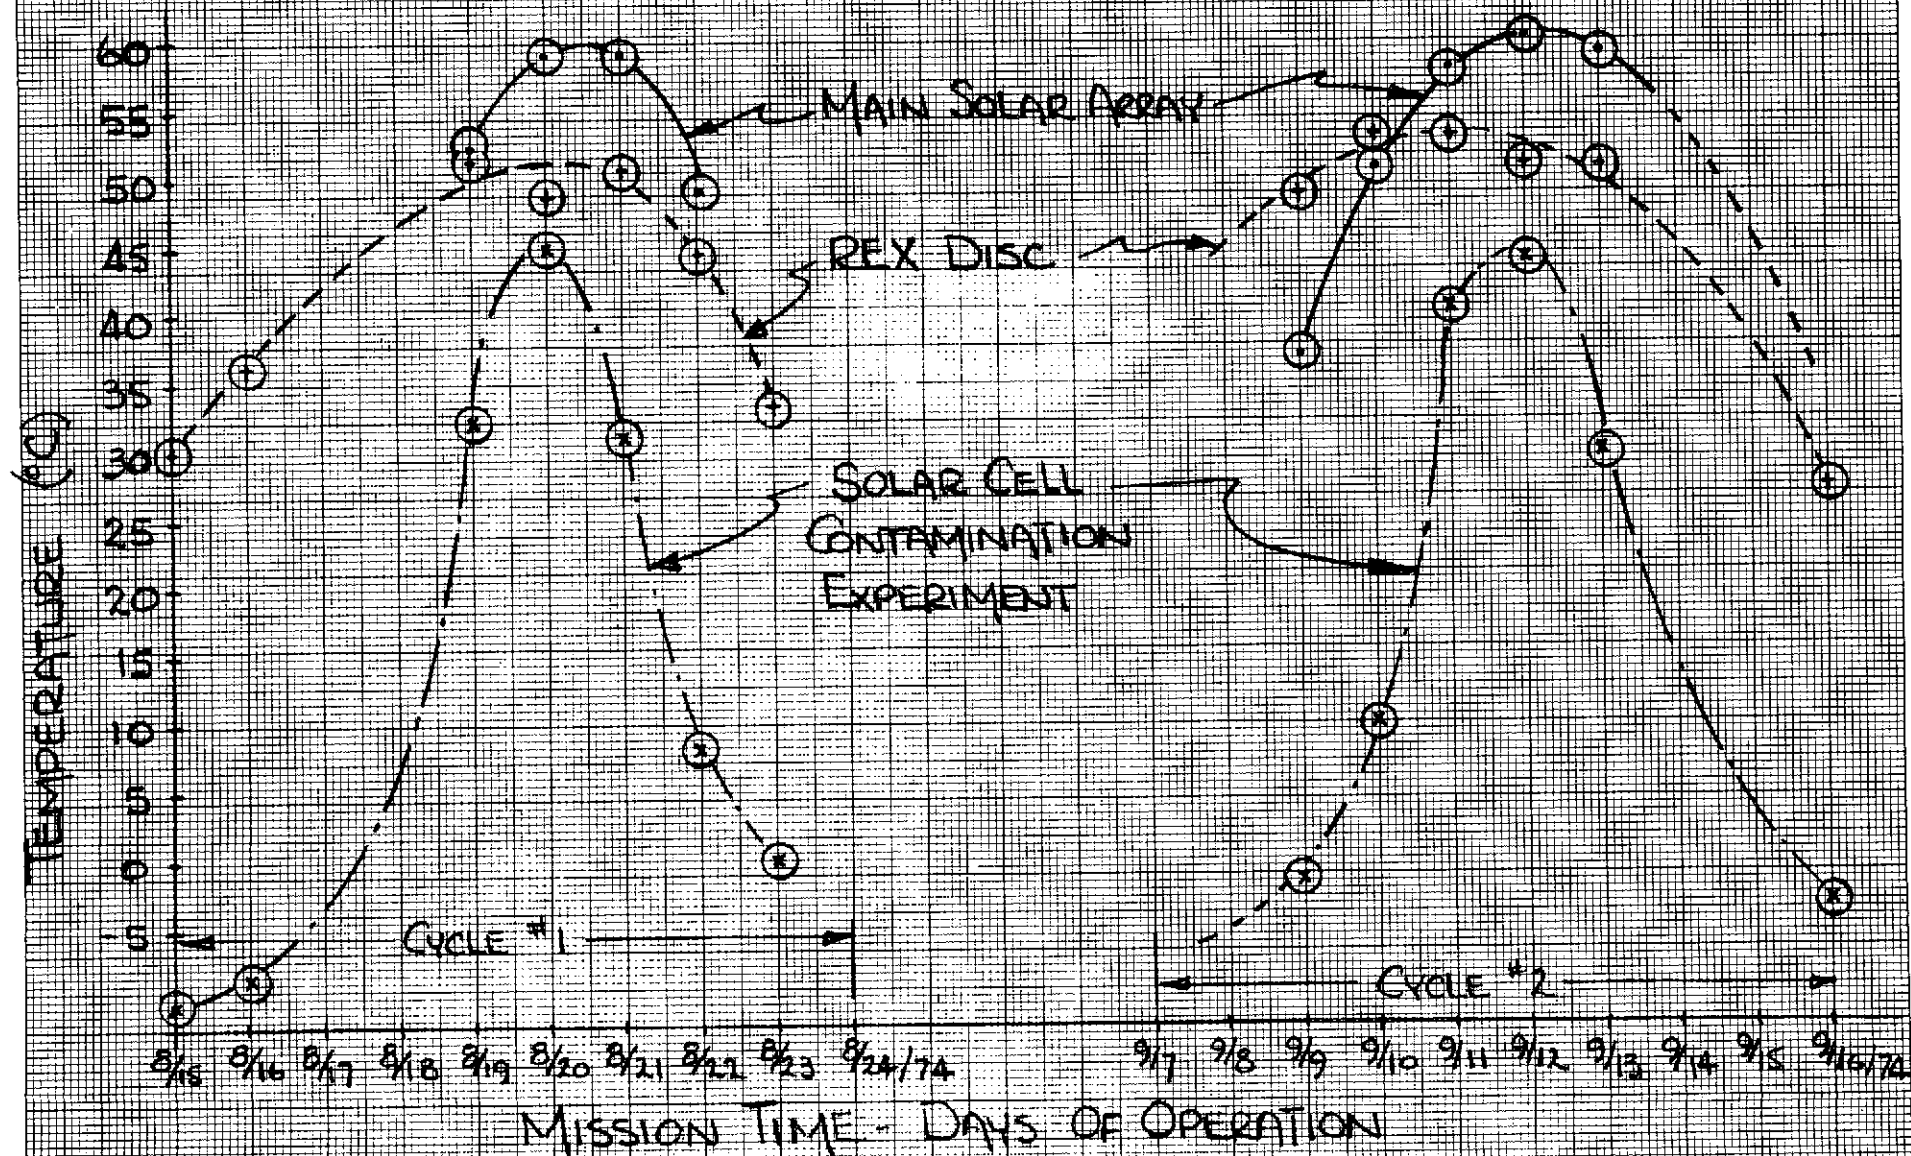 60
55
50
45
40
35
30
25
20
15
10
5
0
-5
TEMPERATURE (°C)
MAIN SOLAR ARRAY
REX DISC
SOLAR CELL
CONTAMINATION
EXPERIMENT
CYCLE #1
CYCLE #2
8/15 8/16 8/17 8/18 8/19 8/20 8/21 8/22 8/23 8/24/74 9/7 9/8 9/9 9/10 9/11 9/12 9/13 9/14 9/15 9/16/74
MISSION TIME - DAYS OF OPERATION